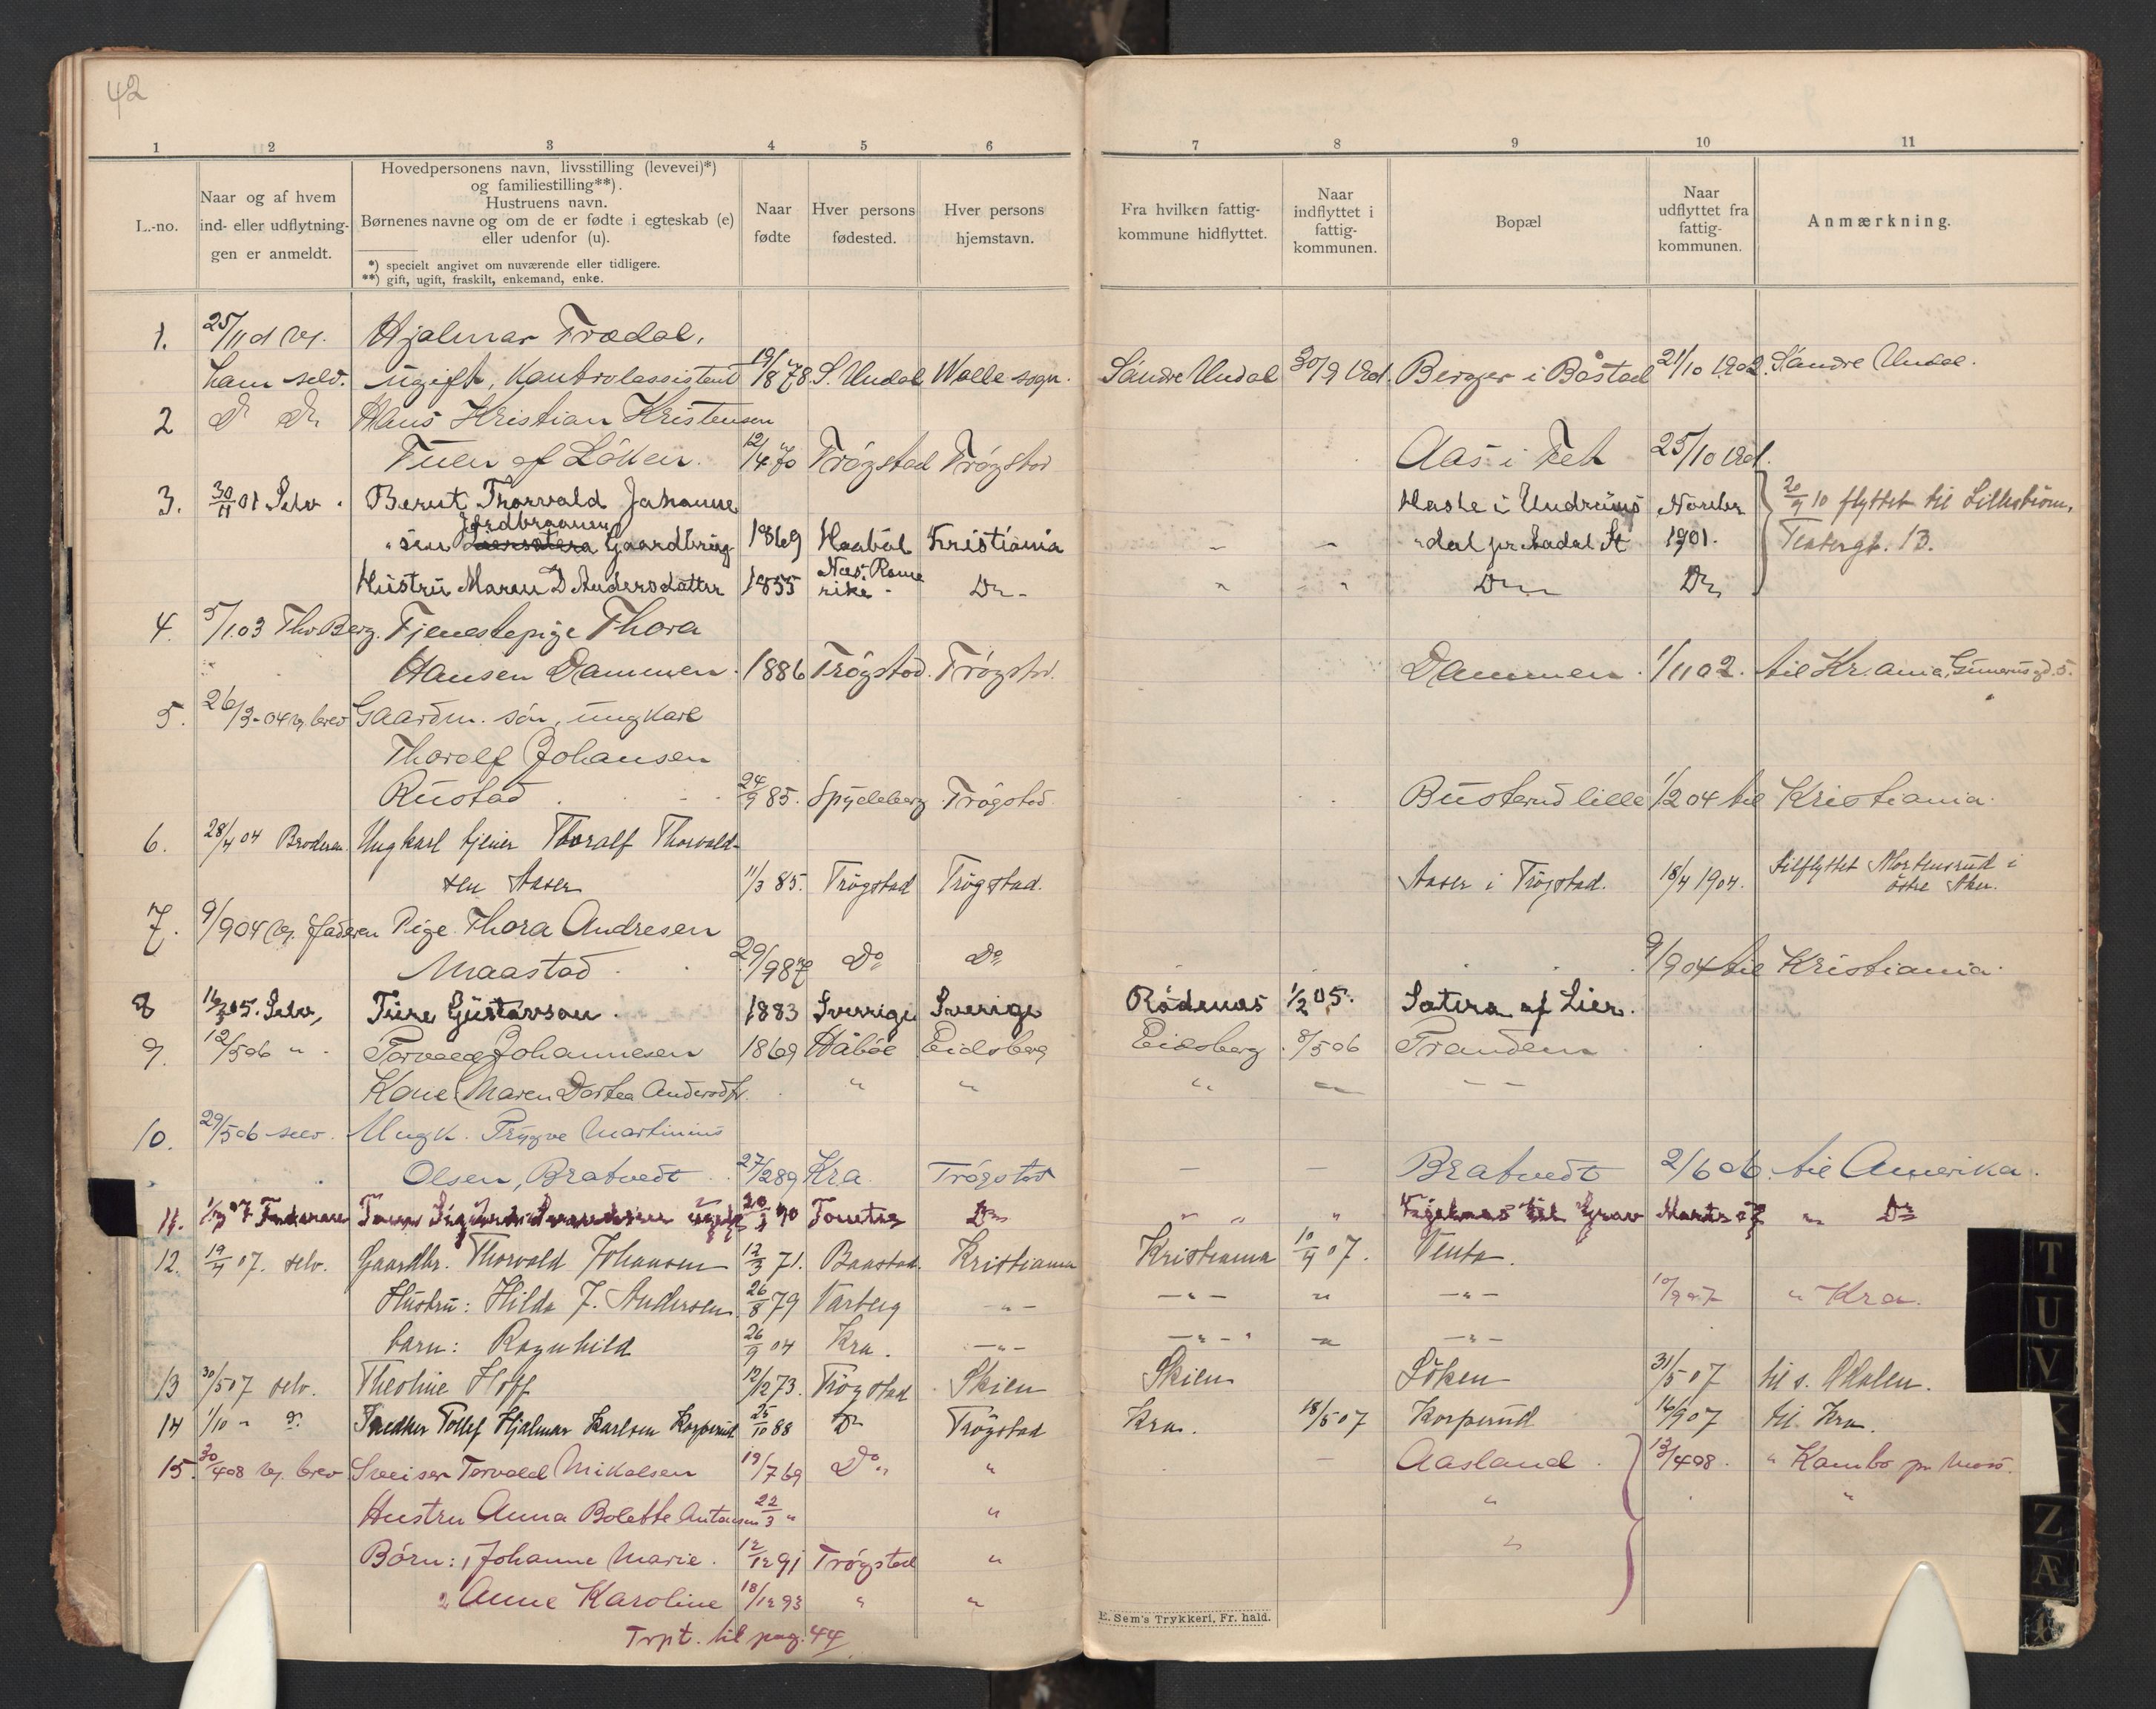 42
1 2 3 4 5 6 7 8 9 10 11
L.-no.
Naar og af hvem
ind- eller udflytnin-
gen er anmeldt.
Hovedpersonens navn, livsstilling (levevei)*)
og familiestilling**).
Hustruens navn.
Børnenes navne og om de er fødte i egteskab (e)
eller udenfor (u).
*) specielt angivet om nuværende eller tidligere.
**) gift, ugift, fraskilt, enkemand, enke.
Naar
fødte
Hver persons
fødested.
Hver persons
hjemstavn.
Fra hvilken fattig-
kommune hidflyttet.
Naar
indflyttet i
fattig-
kommunen.
Bopæl
Naar
udflyttet fra
fattig-
kommunen.
Anmærkning.
1. 25/11 01 Hjalmar Trædal,
ham selv. ugift, Kontrolassistent 19/8 78. S. Undal Walle sogn. Søndre Undal 30/9 Berger i Båstad 21/10 1902. Søndre Undal.
2 Do Do Hans Kristian Kristensen
Tuen af Löken. 12/4 70 Trögstad Trögstad Aas i Fet 25/10
3. 30/11 01 Selv. Bernt Thorvald Johanne Haste i Undrums Novbr 20/9 10 flyttet til Lilleström,
Jordbraaten
"sen Liersætera Gaardbrug 1869 Haaböl Kristiania " - - "dal pr Aadal St 1901. Teatergt. 13.
Hustru Maren D Andersdatter 1855 Næs. Rome
rike - Do - " " " Do Do
4. 5/1 03 Thv Berg. Tjenestepige Thora
Hansen Dammen. 1886 Trögstad. Trögstd. Dammen. 1/11 02. til Kr.ania, Gunerusgd. 5.
5. 26/3-04 brev Gaardm. søn, ungkarl
Thoralf Johansen
Rustad 24/9 85. Spydeberg Trögstad. Busterud lille 1/2 04 til Kristiania.
6. 28/4 04 Broderen. Ungkarl tjener Thoralf Thorvald-
sen Aaser 11/3 85. Trögstad Trögstad. Aaser i Trögstad. 18/4 1904. tilflyttet Mortensrud i
östre Aker.
7. 9/9 04 Faderen Pige Thora Andresen
Maastad. 29/9 87 Do Do 9/9 04 til Kristiania.
8 16/3 05. Selv, Ture Gustavson. 1883 Sverrige Sverige Rödenæs 1/2 05. Sætera af Lier.
9. 12/5 06 " Torvald Johannesen 1869 Håböl Eidsberg Eidsberg 8/5 06 Frauden
Kone Maren Dortea Andersdtr. " " " - - -
10. 29/5 06 selv. Ungk. Trygve Martinius
Olsen, Bratvedt. 27/2 89 Kra. Trögstad - - Bratvedt 2/6 06. til Amerika.
11. 07 Faderen 90 Do " " " til Grav Marts 07 " Do
12. 19/4 07. selv. Gaardbr. Thorvald Johansen 12/3 71. Baastad. Kristiania Kristiania 10/4 07. Venta.
Hustru: Hilda J. Andersen 26/8 79 Varteig - " - - " - " - " - 10/9 07 " Kra.
barn: Ragnhild 26/9 04 Kra. - " - - " - " " - " -
13 30/5 07 selv. Theoline Hoff 12/12 73. Trögstad Skien Skien Löken 31/5 07 til s. Odalen.
14 1/10 " Do Snedker Tollef Hjalmar Karlsen Korperud 25/10 88 Do Trögstad Kra. 18/5 07 Korperud 16/9 07 til Kra.
15. 30/4 08 brev Sveiser Torvald Mikalsen 19/7 69 Do " - Aasland. 13/4 08. " Kambo pr Moss.
Hustru Anna Bolette Antonsen 22/3 " " " "
Börn: 1 Johanne Marie. 12/12 91 Trögstad " "
2 Anne Karoline 18/12 93 " "
Trpt. til pag. 44
E. Sem's Trykkeri, Fr. hald.
T
U
V
Z
Æ